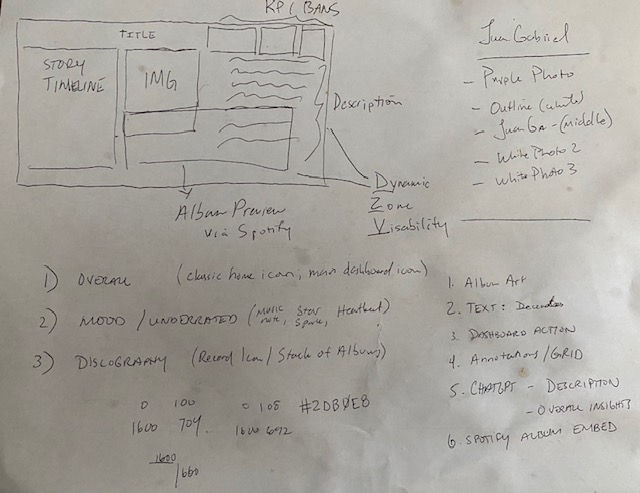 KPI BANS
TITLE
STORY
TIMELINE
IMG
Description
Dynamic
Zone
Visability
Album Preview
via Spotify
Juan Gabriel
- Purple Photo
- Outline (white)
- Juan Ga - (middle)
- White Photo 2
- White Photo 3
1) OVERALL (classic home icon, main dashboard icon)
2) MOOD / UNDERRATED (Music note, Star Spark, Heartbeat)
3) DISCOGRAPHY (Record Icon / Stack of Albums)
0 100 0 108 #2DB0E8
1600 704. 1600 692
1600
/660
1. Album Art
2. TEXT: Decades
3. DASHBOARD ACTION
4. Annotations / GRID
5. CHATGPT - DESCRIPTION
- OVERALL INSIGHTS
6. SPOTIFY ALBUM EMBED